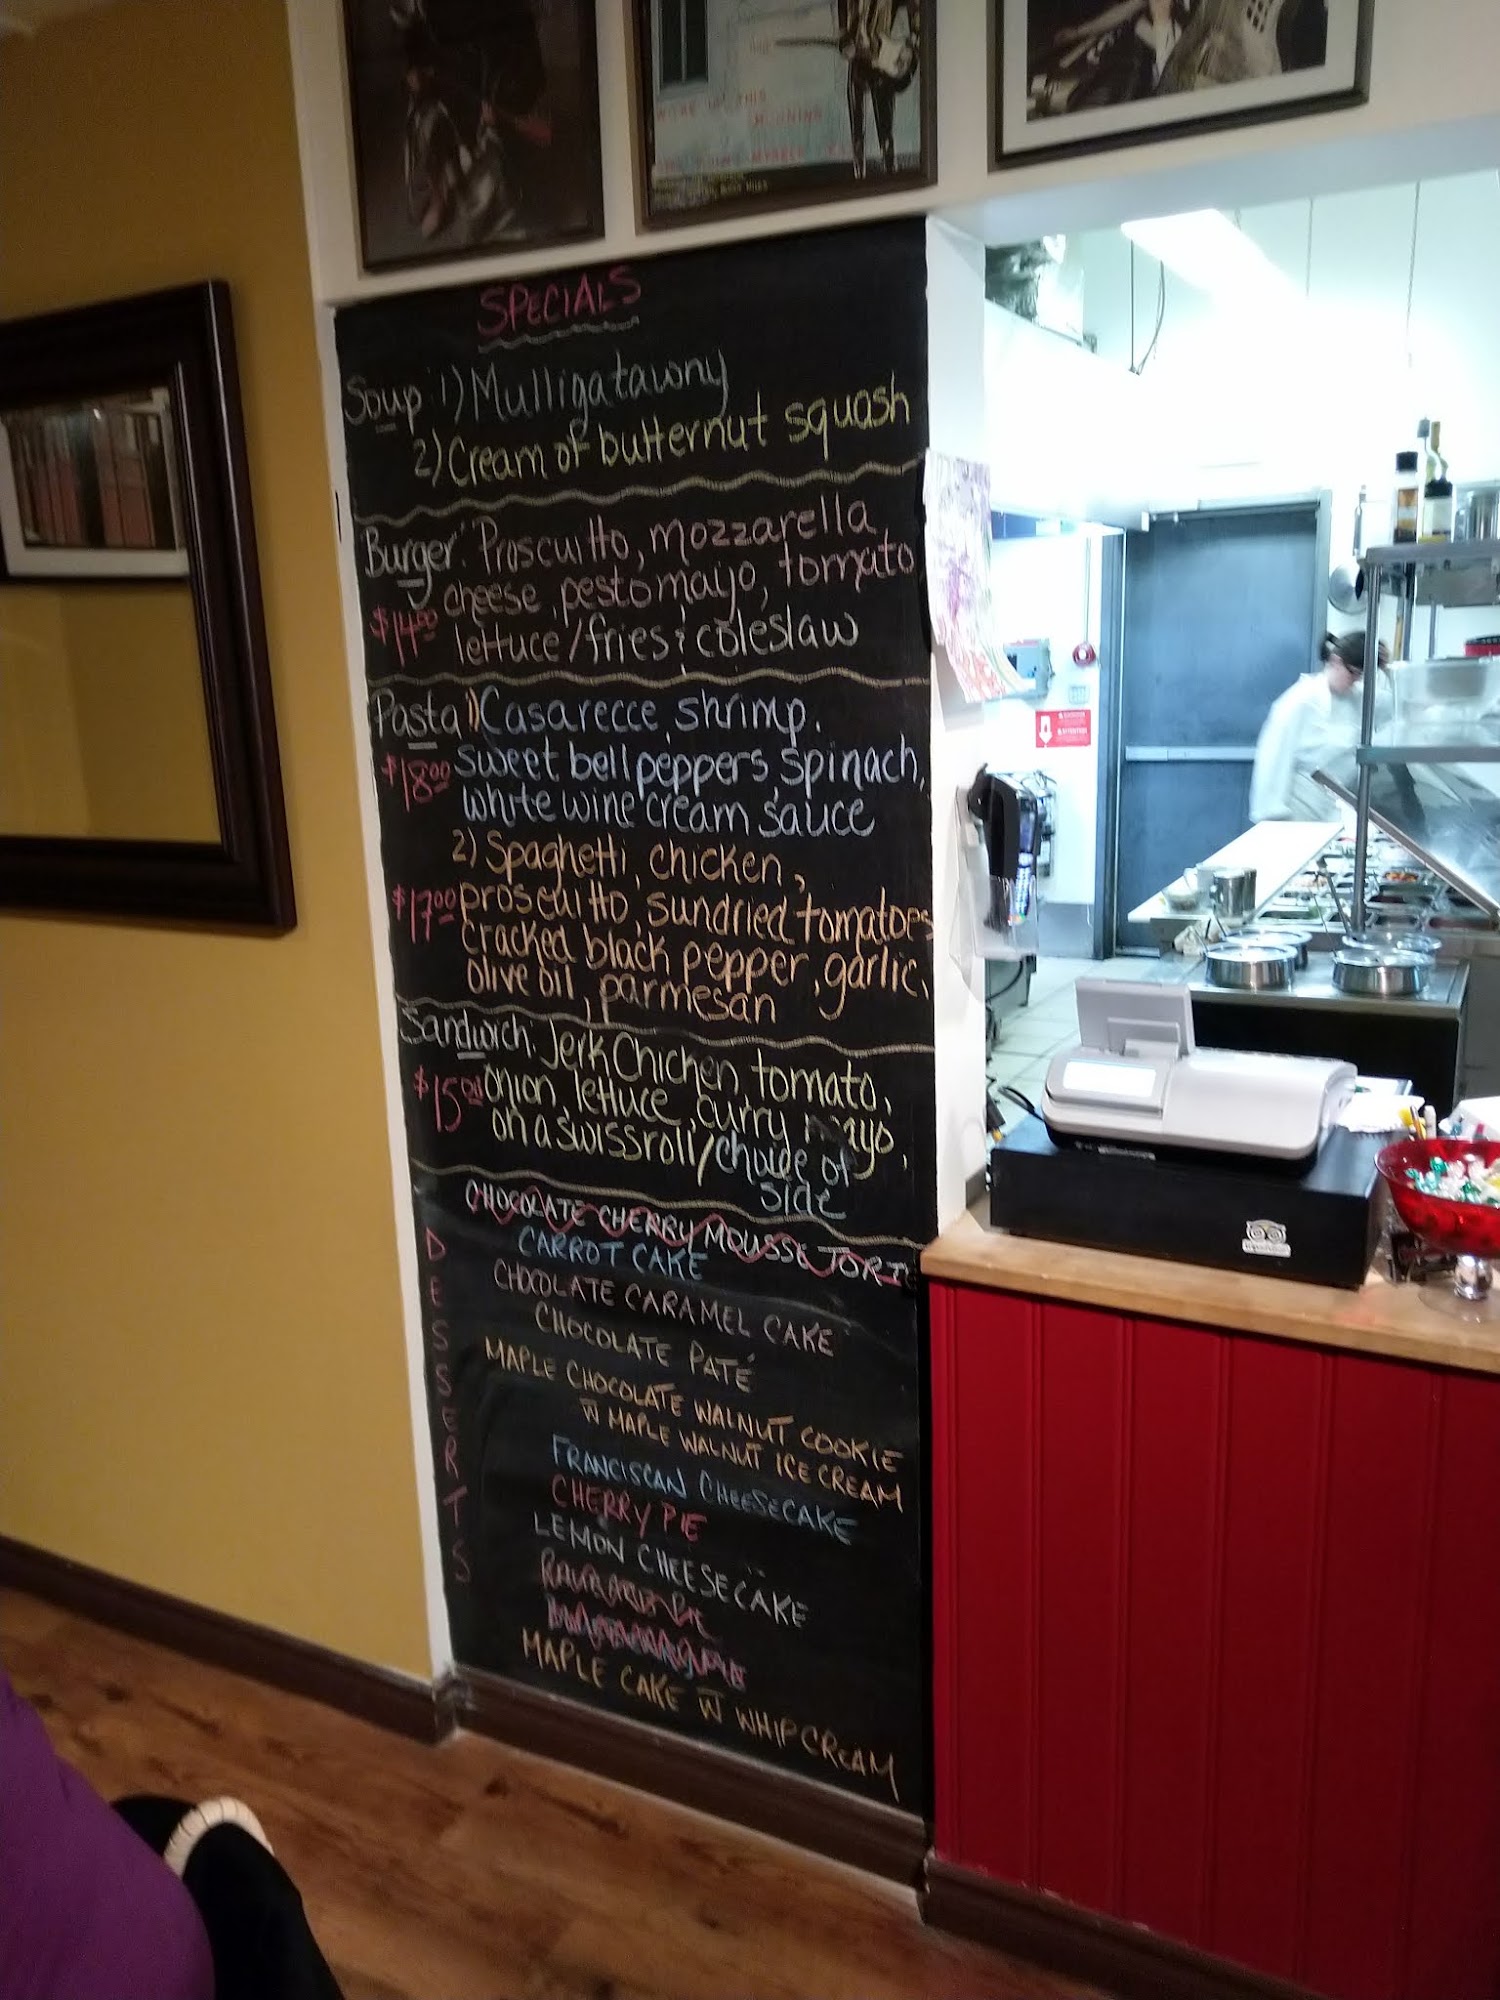 WOKE UP THIS
MORNING
SPECIALS
Soup 1) Mulligatawny
2) Cream of butternut squash
Burger: Proscuitto, mozzarella
cheese, pesto mayo, tomato
$14.00 lettuce/fries & coleslaw
Pasta 1) Casarecce, shrimp,
$18.00 sweet bell peppers, spinach,
white wine cream sauce
2) Spaghetti, chicken,
$17.00 proscuitto, sundried tomatoes
cracked black pepper, garlic,
olive oil, parmesan
Sandwich: Jerk Chicken, tomato,
$15.00 onion, lettuce, curry mayo,
on a swiss roll/choice of
side
DESSERTS
CHOCOLATE CHERRY MOUSSE TORTE
CARROT CAKE
CHOCOLATE CARAMEL CAKE
CHOCOLATE PATÉ
MAPLE CHOCOLATE WALNUT COOKIE
W MAPLE WALNUT ICE CREAM
FRANCISCAN CHEESECAKE
CHERRY PIE
LEMON CHEESECAKE
MAPLE CAKE W WHIP CREAM